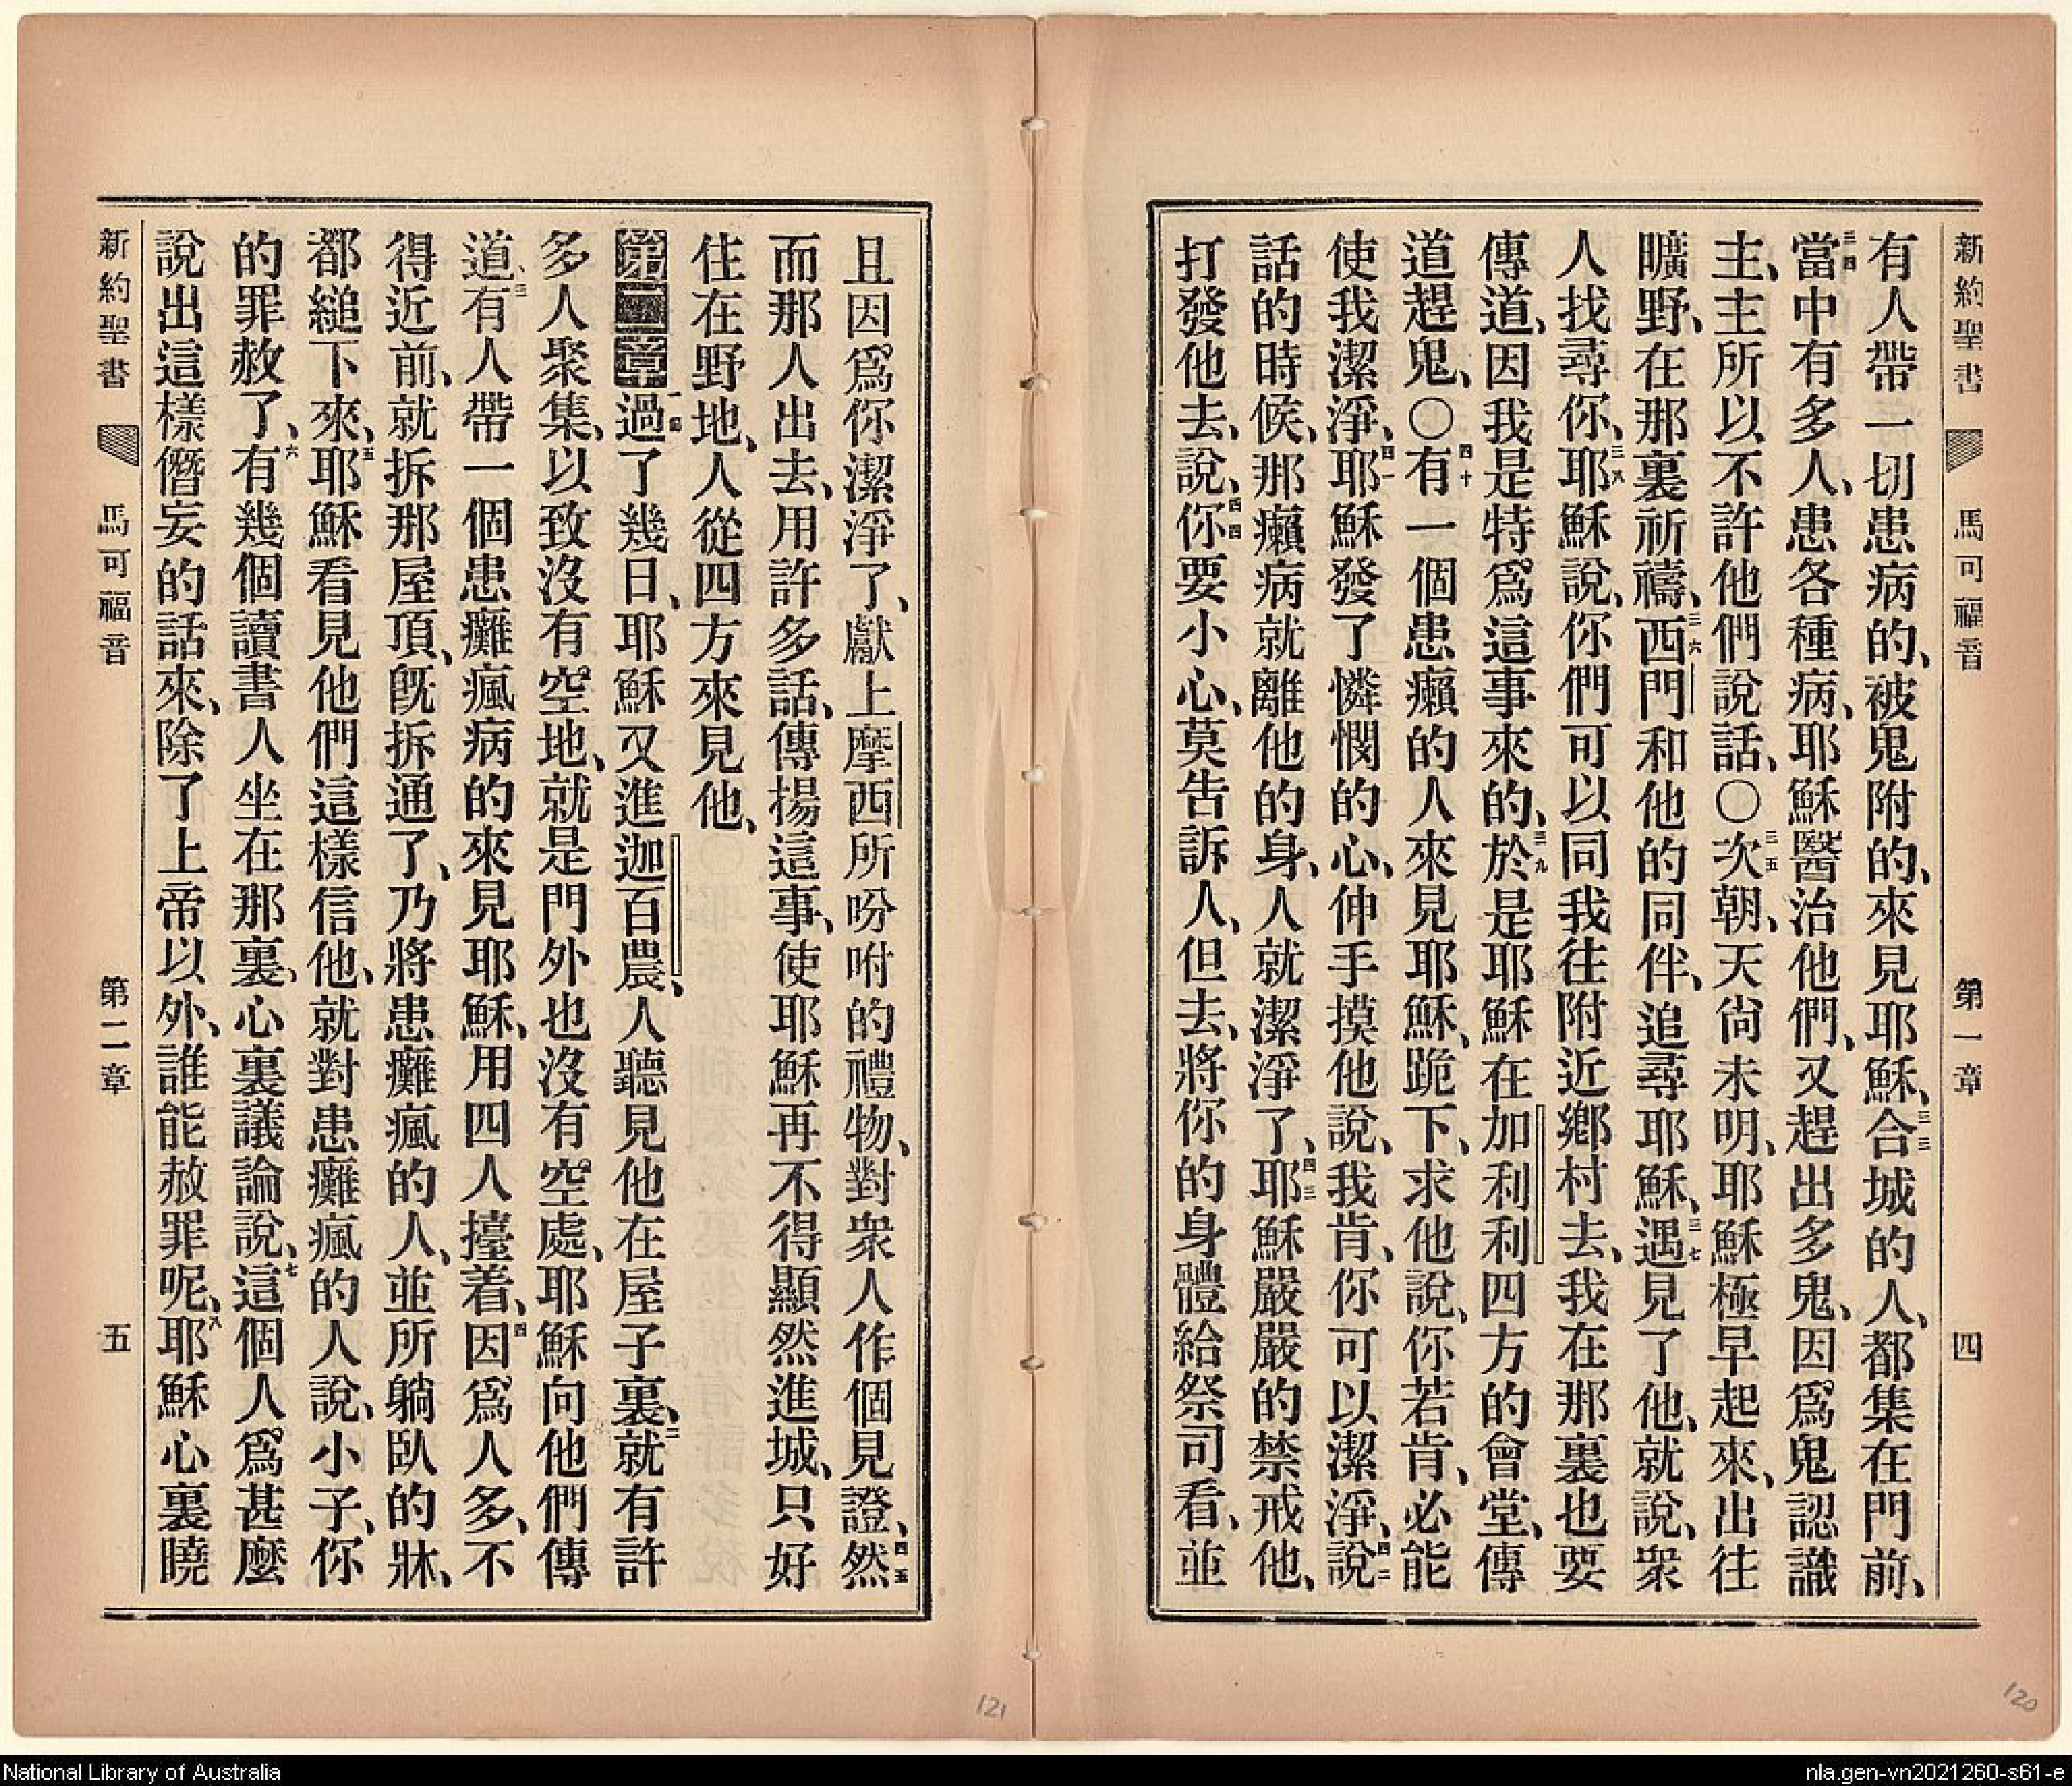 新約聖書 馬可福音 第一章 四
有人帶一切患病的、被鬼附的、來見耶穌、三三合城的人、都集在門前、
三四當中有多人、患各種病、耶穌醫治他們、又趕出多鬼、因爲鬼認識
主、主所以不許他們說話、〇三五次朝、天尙未明、耶穌極早起來、出往
曠野、在那裏祈禱、三六西門和他的同伴、追尋耶穌、三七遇見了他、就說、衆
人找尋你、三八耶穌說、你們可以同我往附近鄉村去、我在那裏也要
傳道、因我是特爲這事來的、三九於是耶穌在加利利四方的會堂、傳
道趕鬼、〇四十有一個患癩的人來見耶穌、跪下、求他說、你若肯、必能
使我潔淨、四一耶穌發了憐憫的心、伸手摸他說、我肯、你可以潔淨、四二說
話的時候、那癩病就離他的身、人就潔淨了、四三耶穌嚴嚴的禁戒他、
打發他去、說、四四你要小心、莫告訴人、但去、將你的身體給祭司看、並
且因爲你潔淨了、獻上摩西所吩咐的禮物、對衆人作個見證、四五然
而那人出去、用許多話、傳揚這事、使耶穌再不得顯然進城、只好
住在野地、人從四方來見他、
第二章 一過了幾日、耶穌又進迦百農、人聽見他在屋子裏、二就有許
多人聚集、以致沒有空地、就是門外也沒有空處、耶穌向他們傳
道、三有人帶一個患癱瘋病的來見耶穌、用四人擡着、四因爲人多、不
得近前、就拆那屋頂、旣拆通了、乃將患癱瘋的人、並所躺臥的牀、
都縋下來、五耶穌看見他們這樣信他、就對患癱瘋的人說、小子、你
的罪赦了、六有幾個讀書人坐在那裏、心裏議論說、七這個人爲甚麼
說出這樣僭妄的話來、除了上帝以外、誰能赦罪呢、八耶穌心裏曉
新約聖書 馬可福音 第二章 五
121
120
National Library of Australia
nla.gen-vn2021260-s61-e